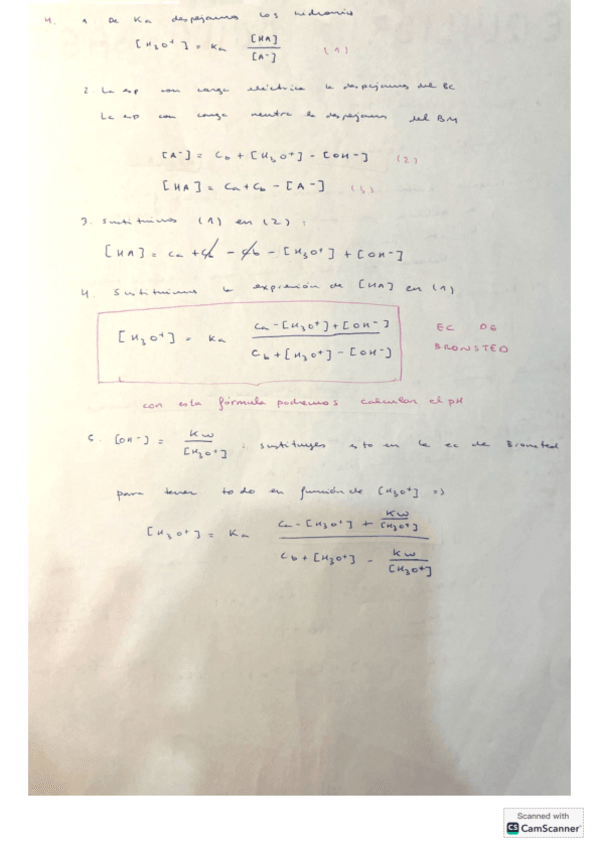 4. 1 De Ka despejamos los hidronio
[H3O+] = Ka [HA]/[A-] (1)
2. La esp con carga eléctrica la despejamos del BC
La esp con carga neutra la despejamos del BM
[A-] = Cb + [H3O+] - [OH-] (2)
[HA] = Ca + Cb - [A-] (3)
3. Sustituimos (1) en (2):
[HA] = Ca + Cb - Cb - [H3O+] + [OH-]
4. Sustituimos la expresión de [HA] en (1)
[H3O+] = Ka (Ca - [H3O+] + [OH-])/(Cb + [H3O+] - [OH-]) EC DE
BRONSTED
con esta fórmula podremos calcular el pH
6. [OH-] = Kw/[H3O+] : sustituyes esto en la ec de Bronsted
para tener todo en función de [H3O+] =>
[H3O+] = Ka (Ca - [H3O+] + Kw/[H3O+])/(Cb + [H3O+] - Kw/[H3O+])
Scanned with
CS CamScanner